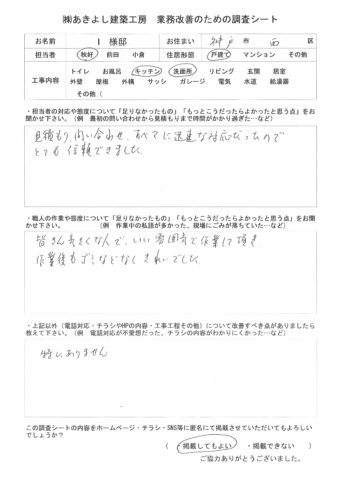 ㈱あきよし建築工房 業務改善のための調査シート
お名前 I 様邸 お住まい 神戸 市 西 区
担当者 秋好 前田 小倉 住居形態 戸建て マンション その他
工事内容 トイレ お風呂 キッチン 洗面所 リビング 玄関 居室
外壁 屋根 外構 サッシ ガレージ 電気 水道 給湯器
その他（
・担当者の対応や態度について「足りなかったもの」「もっとこうだったらよかったと思う点」をお
聞かせ下さい。（例 最初の問い合わせから見積もりまで時間がかかり過ぎた…など）
見積もり、問い合わせ、すべてに迅速な対応だったので
とても信頼できました。
・職人の作業や態度について「足りなかったもの」「もっとこうだったらよかったと思う点」をお聞
かせ下さい。（例 作業中の私語が多かった、現場にごみが落ちていた…など）
皆さん良さくなんで、いい雰囲気で作業して頂き
作業後もゴミなどなく きれいでした。
・上記以外（電話対応・チラシやHPの内容・工事工程その他）について改善すべき点がありましたら
教えて下さい。（例 電話対応が不愛想だった、チラシの内容がわかりにくかった…など）
特にありません
この調査シートの内容をホームページ・チラシ・SNS等に匿名にて掲載させていただいてもよろしい
でしょうか？
（ ・掲載してもよい ・掲載できない ）
ご協力ありがとうございました。